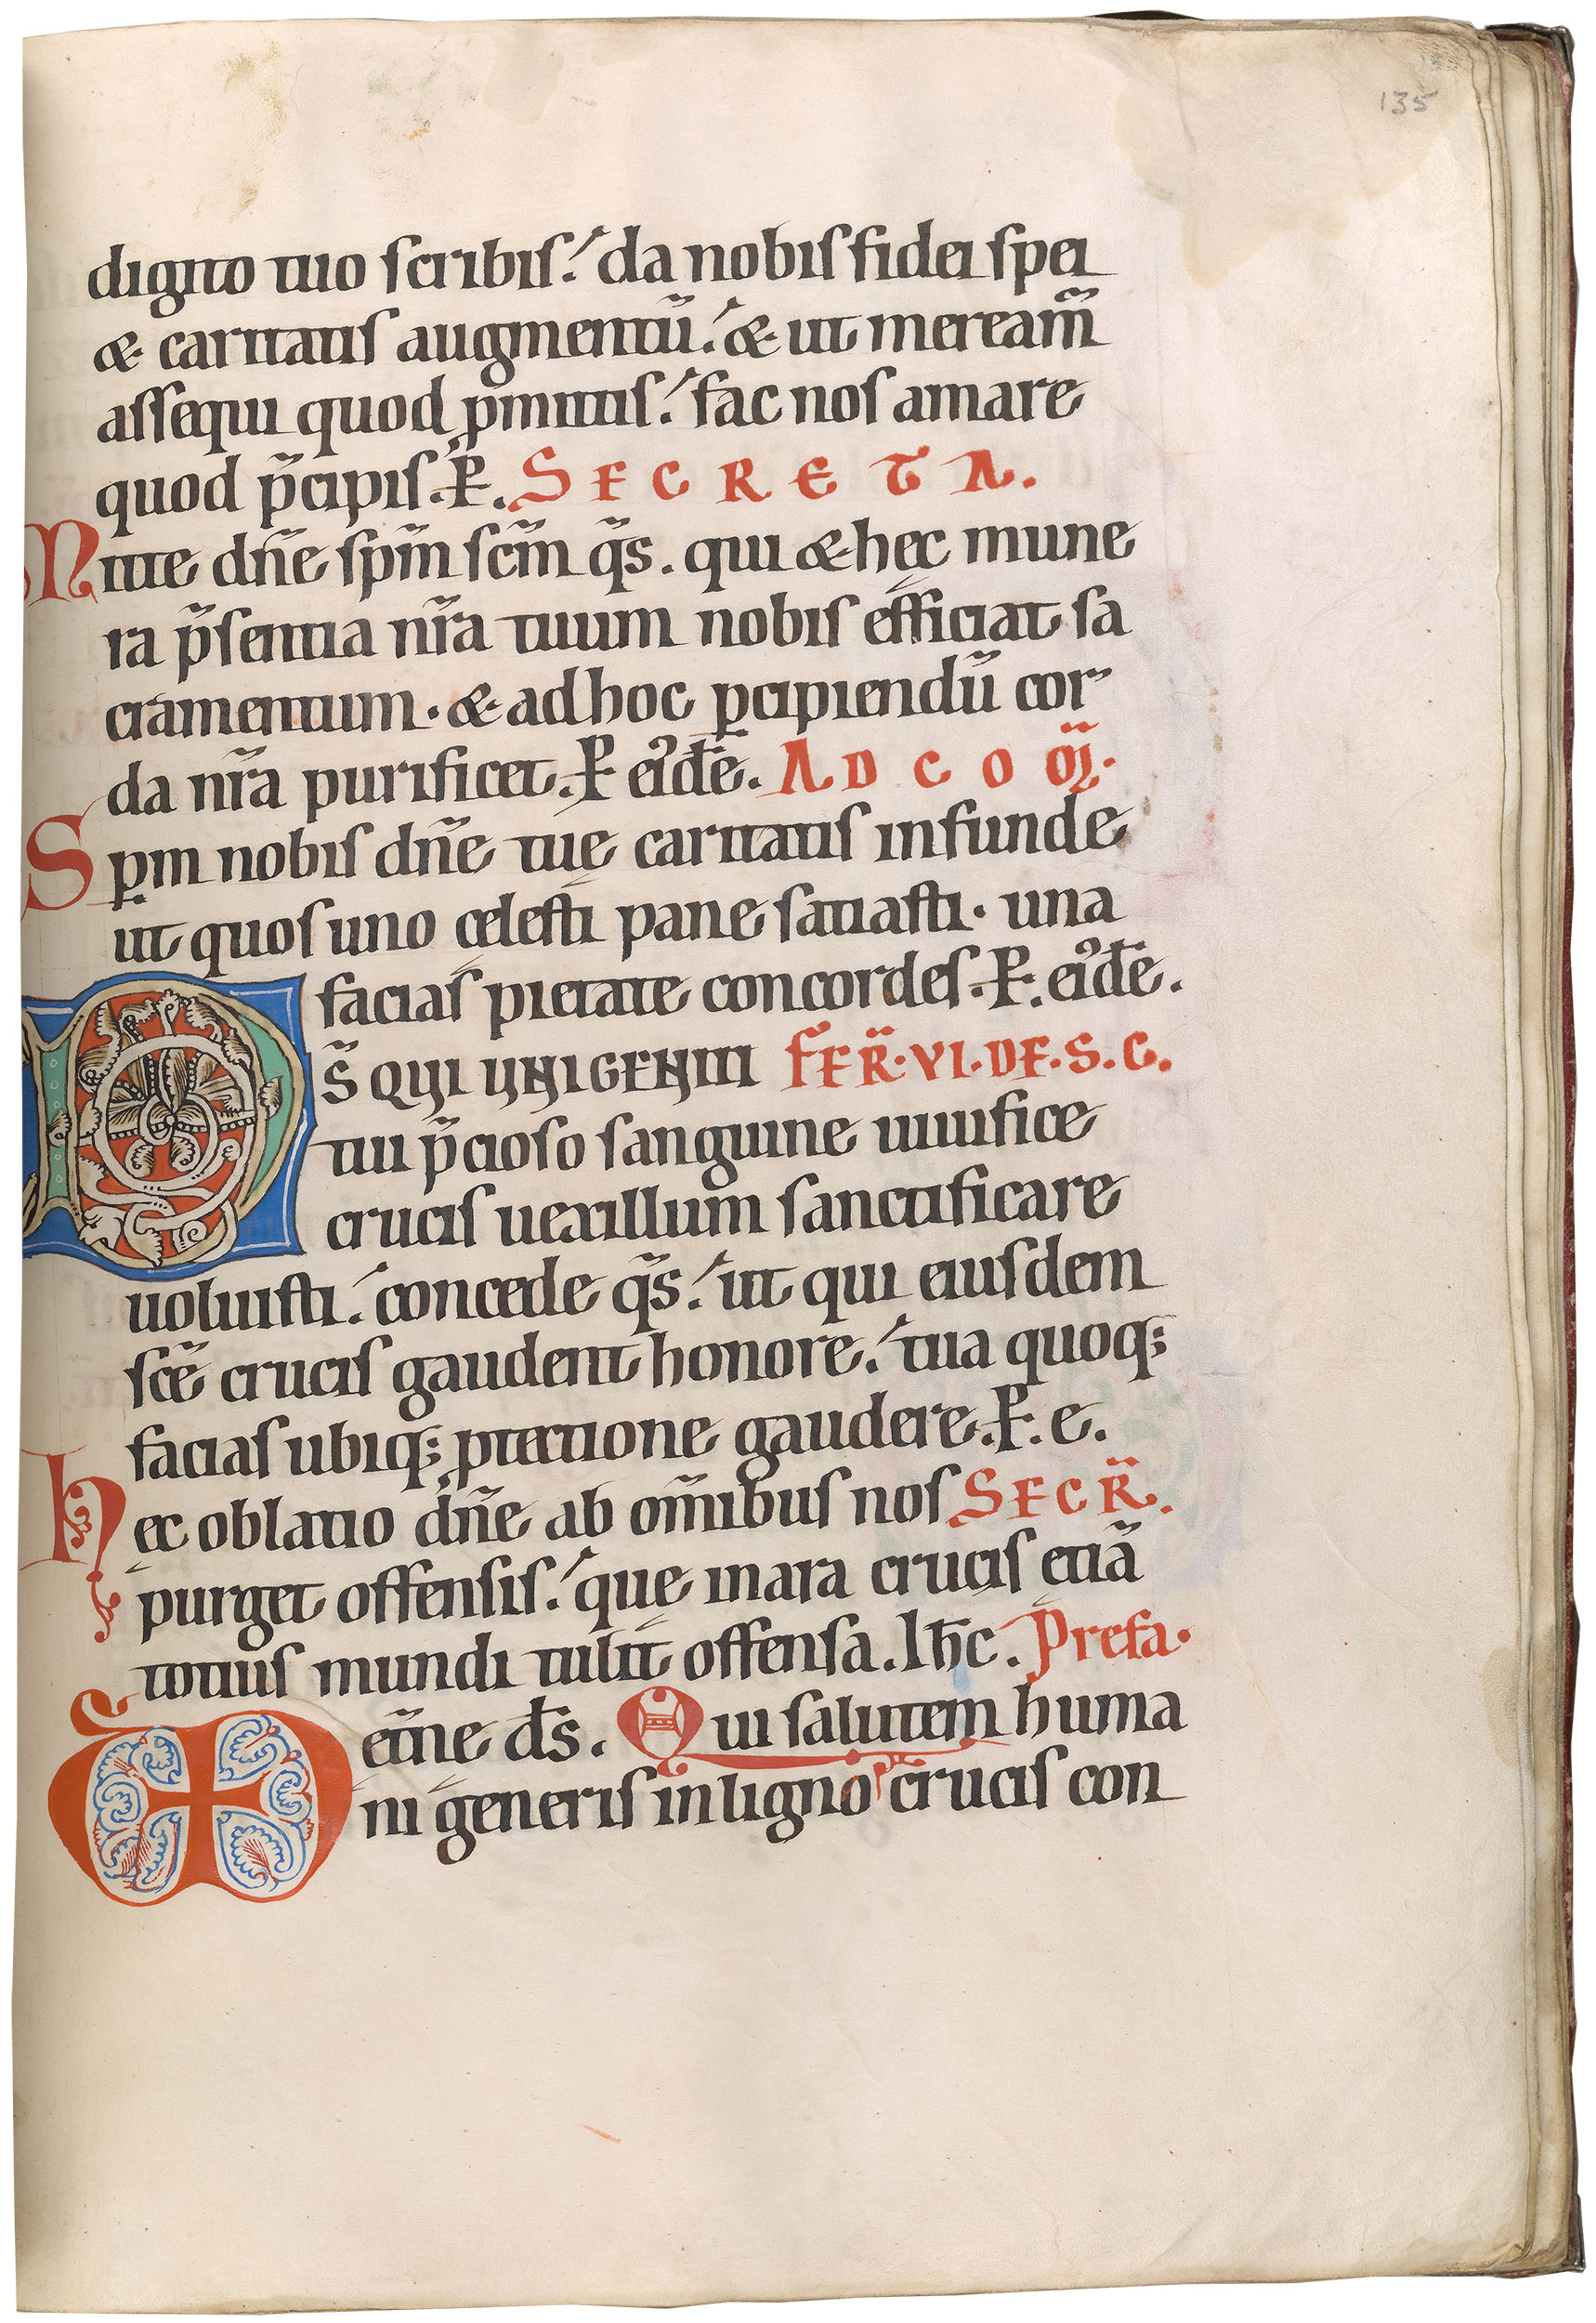 135
digito tuo scribis. da nobis fidei spei
& caritatis augmentū. & ut meream̄
assequi quod p̱mittis. fac nos amare
quod p̄cipis. P̱. SECRETA.
Mitte dn̄e sp̄m sc̄m q̄s. qui & hęc mune
ra p̄sentia nr̄a tuum nobis efficiat sa
cramentum. & ad hoc p̱cipiendū cor
da nr̄a purificet. P̱ eiꝰdē. AD COM̄.
Sp̄m nobis dn̄e tuę caritatis infunde
ut quos uno cęlesti pane satiasti. una
facias pietate concordes. P̱. eiꝰdē.
DS̄ QUI UNIGENITI FER̄. VI. DE. S. C.
tui p̄cioso sanguine uiuificę
crucis uexillum sanctificare
uoluisti. concede q̄s. ut qui eiusdem
sc̄ę crucis gaudent honore. tua quoq;
facias ubiq; ꝓtectione gaudere. P̱. e.
Hęc oblatio dn̄e ab om̄ibus nos SECR̄.
purget offensis. quę in ara crucis etiā
totius mundi tulit offensa. I h̄c. Prefa.
et̄ne ds̄. Qui salutem huma
ni generis in ligno crucis con